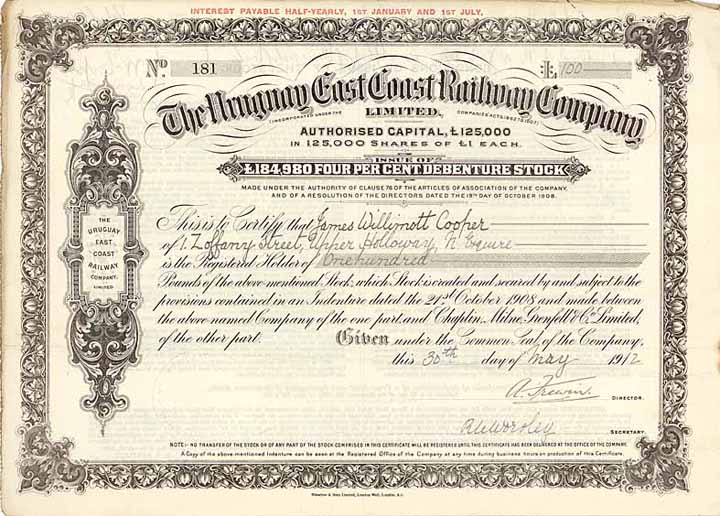 INTEREST PAYABLE HALF-YEARLY, 1ST JANUARY AND 1ST JULY,
No. 181 £ 100
The Uruguay East Coast Railway Company
(INCORPORATED UNDER THE LIMITED. COMPANIES ACTS, 1862 TO 1907)
AUTHORISED CAPITAL, £125,000
IN 125,000 SHARES OF £1 EACH.
ISSUE OF
£184,980 FOUR PER CENT DEBENTURE STOCK
MADE UNDER THE AUTHORITY OF CLAUSE 76 OF THE ARTICLES OF ASSOCIATION OF THE COMPANY,
AND OF A RESOLUTION OF THE DIRECTORS DATED THE 19TH DAY OF OCTOBER 1908.
THE
URUGUAY
EAST
COAST
RAILWAY
COMPANY,
LIMITED
This is to Certify that James Willimott Cooper
of 1. Zoffany Street, Upper Holloway, N. Esquire
is the Registered Holder of One hundred
Pounds of the above-mentioned Stock, which Stock is created and secured by and subject to the
provisions contained in an Indenture dated the 21st October 1908 and made between
the above-named Company of the one part, and Chaplin, Milne, Grenfell & Co. Limited,
of the other part. Given under the Common Seal of the Company,
this 30th day of May 1912
DIRECTOR.
SECRETARY.
NOTE:- NO TRANSFER OF THE STOCK OR OF ANY PART OF THE STOCK COMPRISED IN THIS CERTIFICATE WILL BE REGISTERED UNTIL THIS CERTIFICATE HAS BEEN DELIVERED AT THE OFFICE OF THE COMPANY.
A Copy of the above-mentioned Indenture can be seen at the Registered Office of the Company at any time during business hours on production of this Certificate.